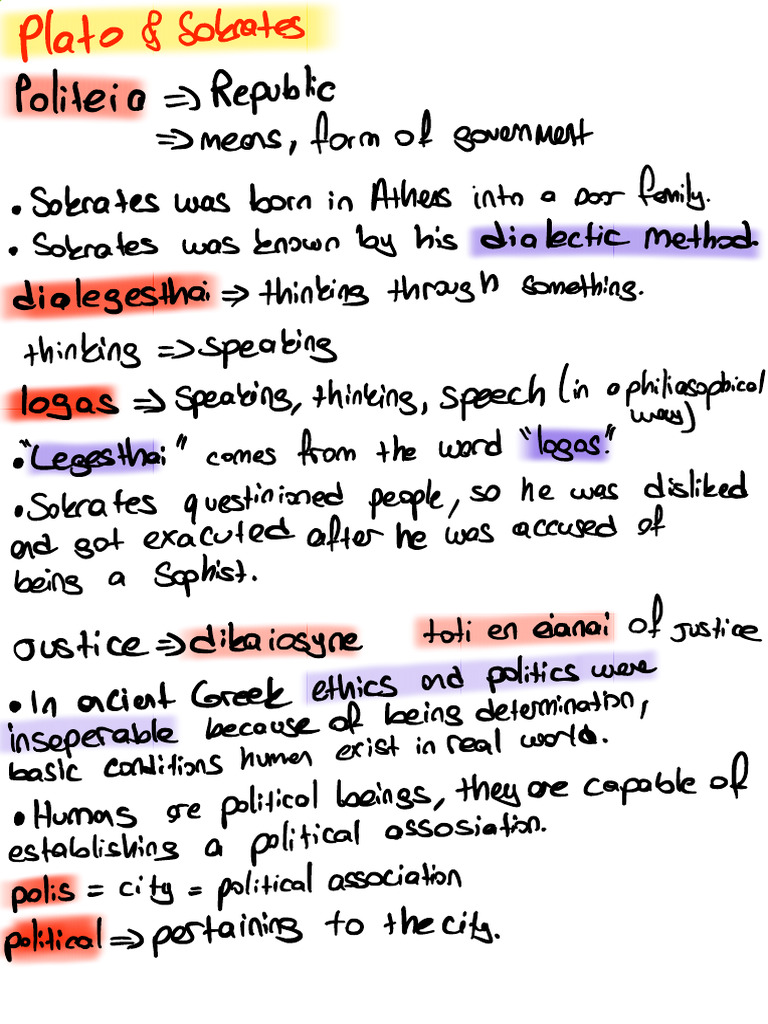 Plato & Sokrates
Politeia => Republic
=> means, form of government
• Sokrates was born in Athens into a poor family.
• Sokrates was known by his dialectic method.
dialegesthai => thinking through something.
thinking => speaking
logas => speaking, thinking, speech (in a philiasophical
way)
• "Legesthai" comes from the word "logas."
• Sokrates questinioned people, so he was disliked
and got exacuted after he was accused of
being a Sophist.
oustice => dikaiosyne toti en eianai of justice
• In ancient Greek ethics and politics were
inseperable because of being determination,
basic conditions human exist in real world.
• Humans are political beings, they are capable of
establishing a political assosiation.
polis = city = political association
political => pertaining to the city.